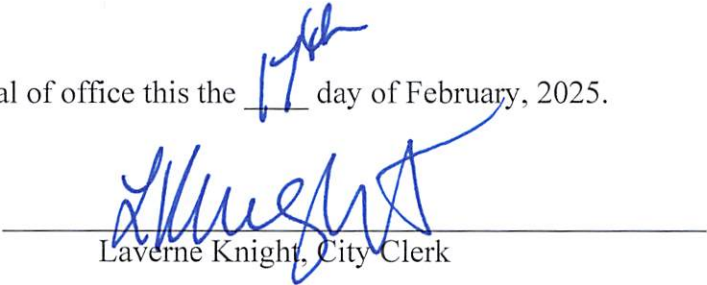 al of office this the 17th day of February, 2025.
LKnight
Laverne Knight, City Clerk